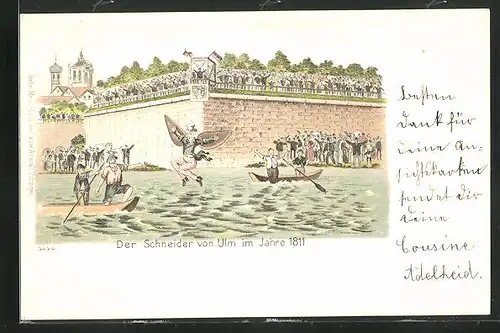 Der Schneider von Ulm im Jahre 1811
Besten
Dank für
deine An-
sichtskarten
sendet dir
deine
Cousine
Adelheid.